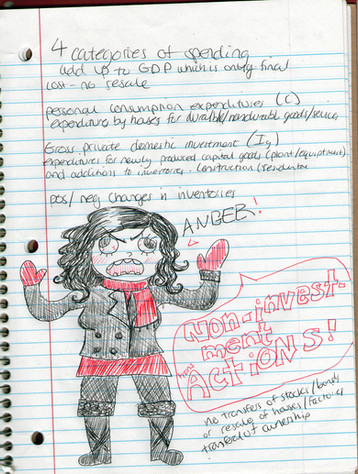 4 categories of spending
add up to GDP which is only final
cost - no resale
personal consumption expenditures (C)
expenditure by houses for durable/nondurable goods/services
Gross private domestic investment (Ig)
expenditures for newly produced capital goods (plant/equiptment)
and additions to inventories. Construction (residential
pos/neg changes in inventories
ANGER!
Non-invest-
ment
ACTIONS!
no transfers of stocks/bonds
or resale of houses/factories
transfer of ownership